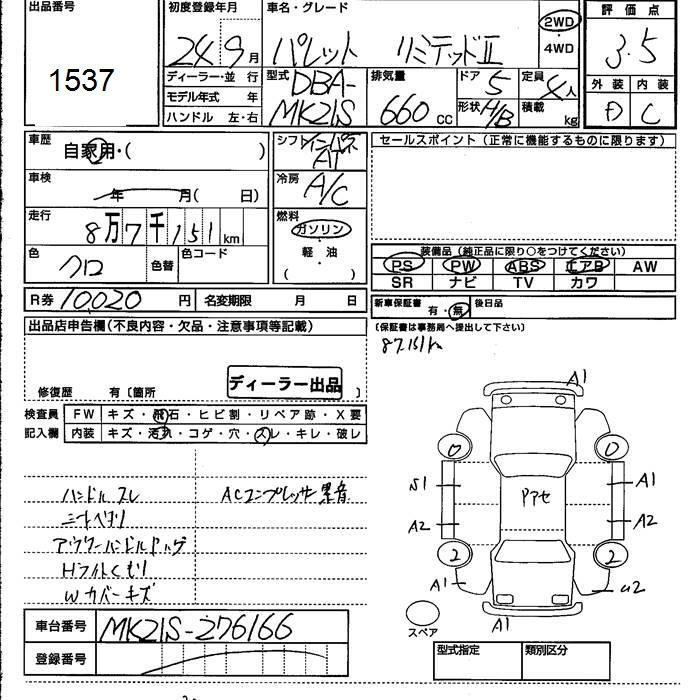 出品番号
1537
初度登録年月
24 9月
ディーラー・並 行
モデル年式 年
ハンドル 左・右
車名・グレード
パレット リミテッドⅡ
2WD
・
4WD
型式
DBA-
MK21S
排気量
660 cc
ドア 5
形状 H/B
定員 4人
積載 kg
評価点
3.5
外装 内装
D C
車歴
自家用・( )
車検
年 月( 日)
走行
8万7千151km
色
クロ
色替
色コード
R券 10,020 円
名変期限 月 日
シフト インパネ
AT
冷房
A/C
燃料
ガソリン
・
軽油
・
( )
セールスポイント(正常に機能するものに限ります)
装備品(純正品に限り○をつけてください)
PS PW ABS エアB AW
SR ナビ TV カワ
新車保証書 有・無
後日品
(保証書は事務局へ提出して下さい)
87,151km
出品店申告欄(不良内容・欠品・注意事項等記載)
ディーラー出品
修復歴 有〔箇所 〕
検査員
記入欄
FW キズ・飛石・ヒビ割・リペア跡・X要
内装 キズ・汚れ・コゲ・穴・スレ・キレ・破レ
ハンドルスレ
ACコンプレッサー異音
ニオイヘタリ
アウターハンドル
Hライトくもり
Wカバーキズ
A1
0 0
S1 Pアセ A1
A2 A2
2 2
A1 U2
A1
スペア
車台番号 MK21S-276166
登録番号
型式指定 類別区分